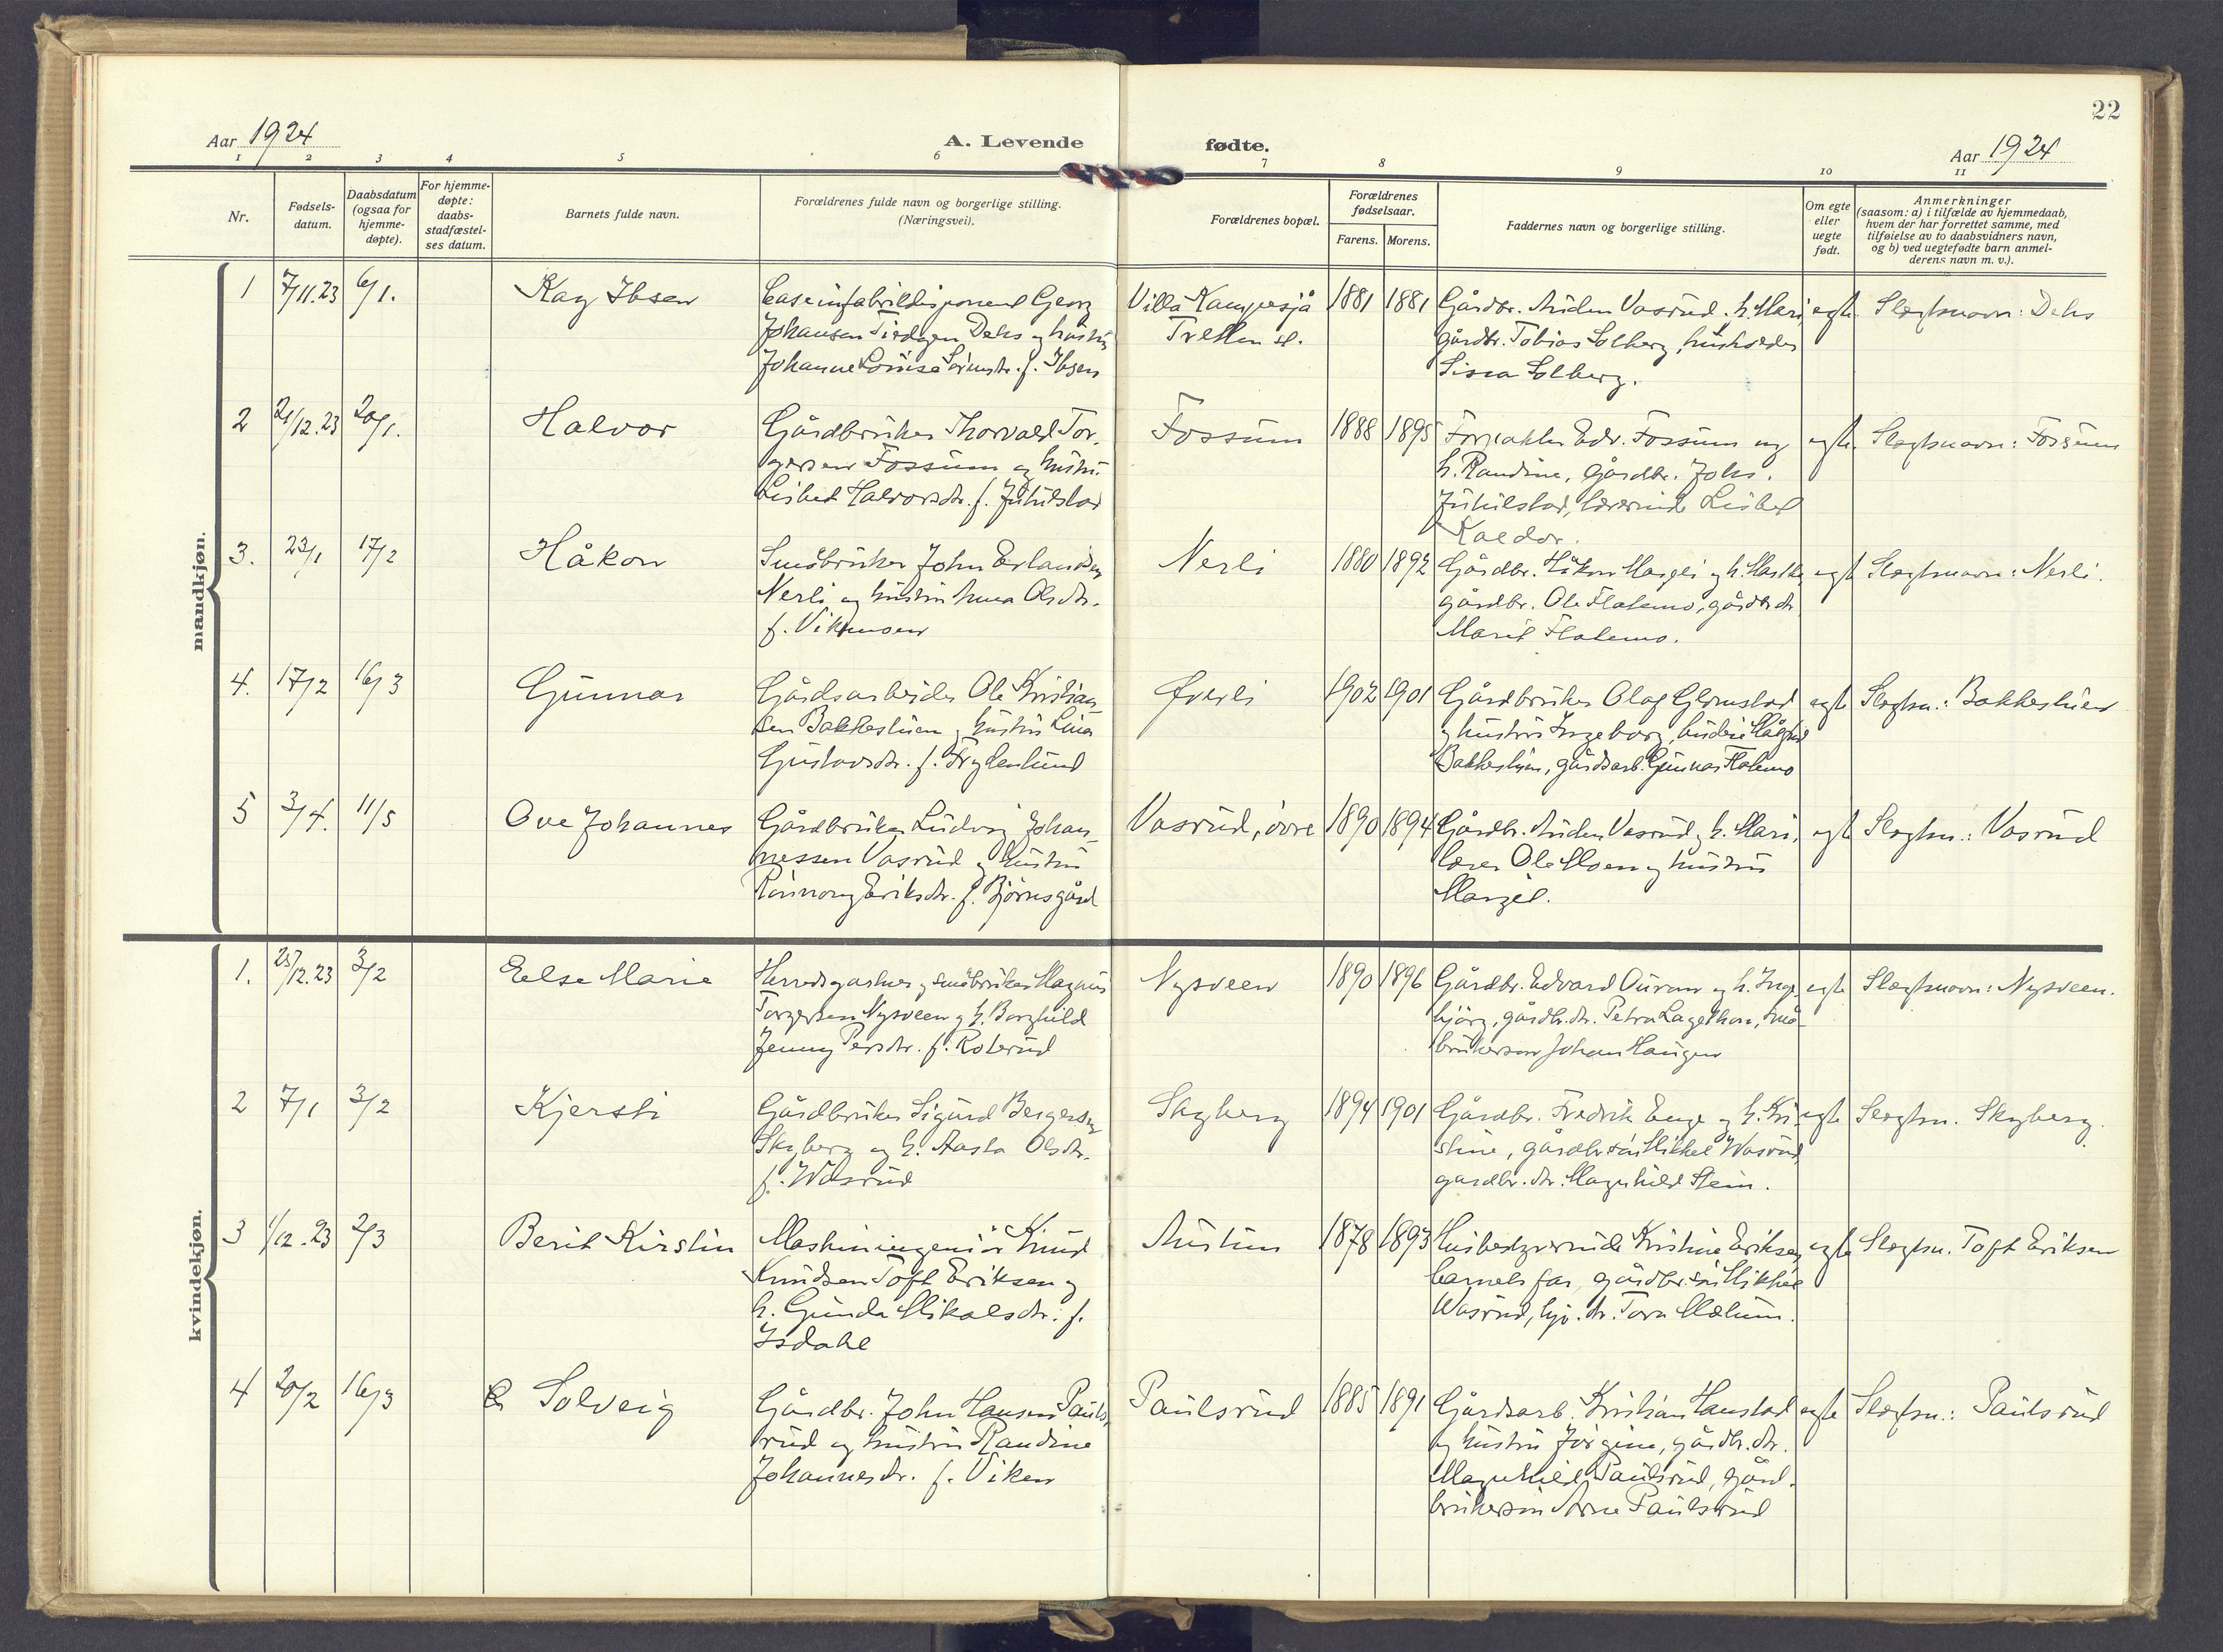 22
Aar 1924
A. Levende
fødte.
Aar 1924
1 2 3 4 5 6 7 8 9 10 11
Nr.
Fødsels-
datum.
Daabsdatum
(ogsaa for
hjemme-
døpte).
For hjemme-
døpte:
daabs-
stadfæstel-
ses datum.
Barnets fulde navn.
Forældrenes fulde navn og borgerlige stilling.
(Næringsvei).
Forældrenes bopæl.
Forældrenes
fødselsaar.
Farens. Morens.
Faddernes navn og borgerlige stilling.
Om egte
eller
uegte
født.
Anmerkninger
(saasom: a) i tilfælde av hjemmedaab,
hvem der har forrettet samme, med
tilføielse av to daabsvidners navn,
og b) ved uegtefødte barn anmel-
derens navn m. v.).
mandkjøn.
1 7/11.23 6/1. Kay Ibsen
Georg
Johansen Dehs og hustru
Johanne Lovise f. Ibsen
Villa Kampesjå
Tretten st.
1881 1881
Gårdbr. Auden Vasrud, h. Mari,
gårdbr. Tobias Solberg,
Solberg.
egte Slegtsnavn: Dehs
2 21/12.23 20/1. Halvor
Gårdbruker Thorvald Tor-
gersen Fossum og hustru
Lisbet Halvorsdtr. f. Jutulstad
Fossum
1888 1895
Forpakter Edv. Fossum og
h. Randine, gårdbr. Johs.
Jutulstad, lærerinde Lisbet
Kaldor.
egte Slegtsnavn: Fossum
3. 23/1 17/2 Håkon
Småbruker John Erlandsen
Nerli og hustru Anna Olsdtr.
f. Vikmoen
Nerli
1880 1892
Gårdbr. Håkon og h. Marthe,
gårdbr. Ole Flatemo, gårdbr.dtr.
Marit Flatemo.
egte Slegtsnavn: Nerli.
4. 17/2 16/3 Gunnar
Gårdsarbeider Ole Kristian-
sen Bakkestuen og hustru Lina
Gustavsdtr. f. Frydenlund
Øverli
1902 1901
Gårdbruker Olaf Glomstad
og hustru Ingeborg, budeie
Bakkestuen, gårdsarb. Gunnar Flatemo
egte Slegtsn.: Bakkestuen
5 3/4. 11/5 Ove Johannes
Gårdbruker Ludvig Johan-
nessen Vasrud og hustru
Rønnoug Eriksdtr. f. Bjørnsgård
Vasrud, øvre
1890 1894
Gårdbr. Auden Vasrud og h. Mari,
lærer Ole Moen og hustru
Margit.
egte Slegtsn.: Vasrud
kvindekjøn.
1. 25/12.23 3/2 Else Marie
Herredsgartner og småbruker Magnus
Torgersen Nysveen og h. Borghild
Jenny Persdtr. f. Roterud
Nysveen
1890 1896
Gårdbr. Edvard Ouren og h. Inge-
bjørg, gårdbr.dtr. Petra Lagethon, små-
brukersøn Johan Haugen
egte Slegtsnavn: Nysveen.
2 7/1 3/2 Kjersti
Gårdbruker Sigurd Bergersen
Skyberg og h. Aasta Olsdtr.
f. Wasrud
Skyberg
1894 1901
Gårdbr. Fredrik Enge og h. Kri-
stine, gårdbr.søn Mikkel Wasrud,
gardbr.dtr. Magnhild Stein.
egte Slegtsn. Skyberg.
3 1/12.23 2/3 Berit Kirstin
Maskiningeniør Knud
Knudsen Toft Eriksen og
h. Gunda Mikalsdtr. f.
Isdahl
Austum
1878 1893
Husbestyrerinde Kristine Eriksen,
barnets far, gårdbr.søn Mikkel
Wasrud, dtr. Tora Mælum.
egte Slegtsn. Toft Eriksen
4 20/2 16/3 Solveig
Gårdbr. John Hansen Pauls-
rud og hustru Randine
Johannesdtr. f. Viken
Paulsrud
1885 1891
Gårdsarb. Kristian Hanstad
og hustru Jørgine, gårdbr.dtr.
Magnhild Paulsrud, gård-
brukersøn Arne Paulsrud
egte Slegtsn.: Paulsrud